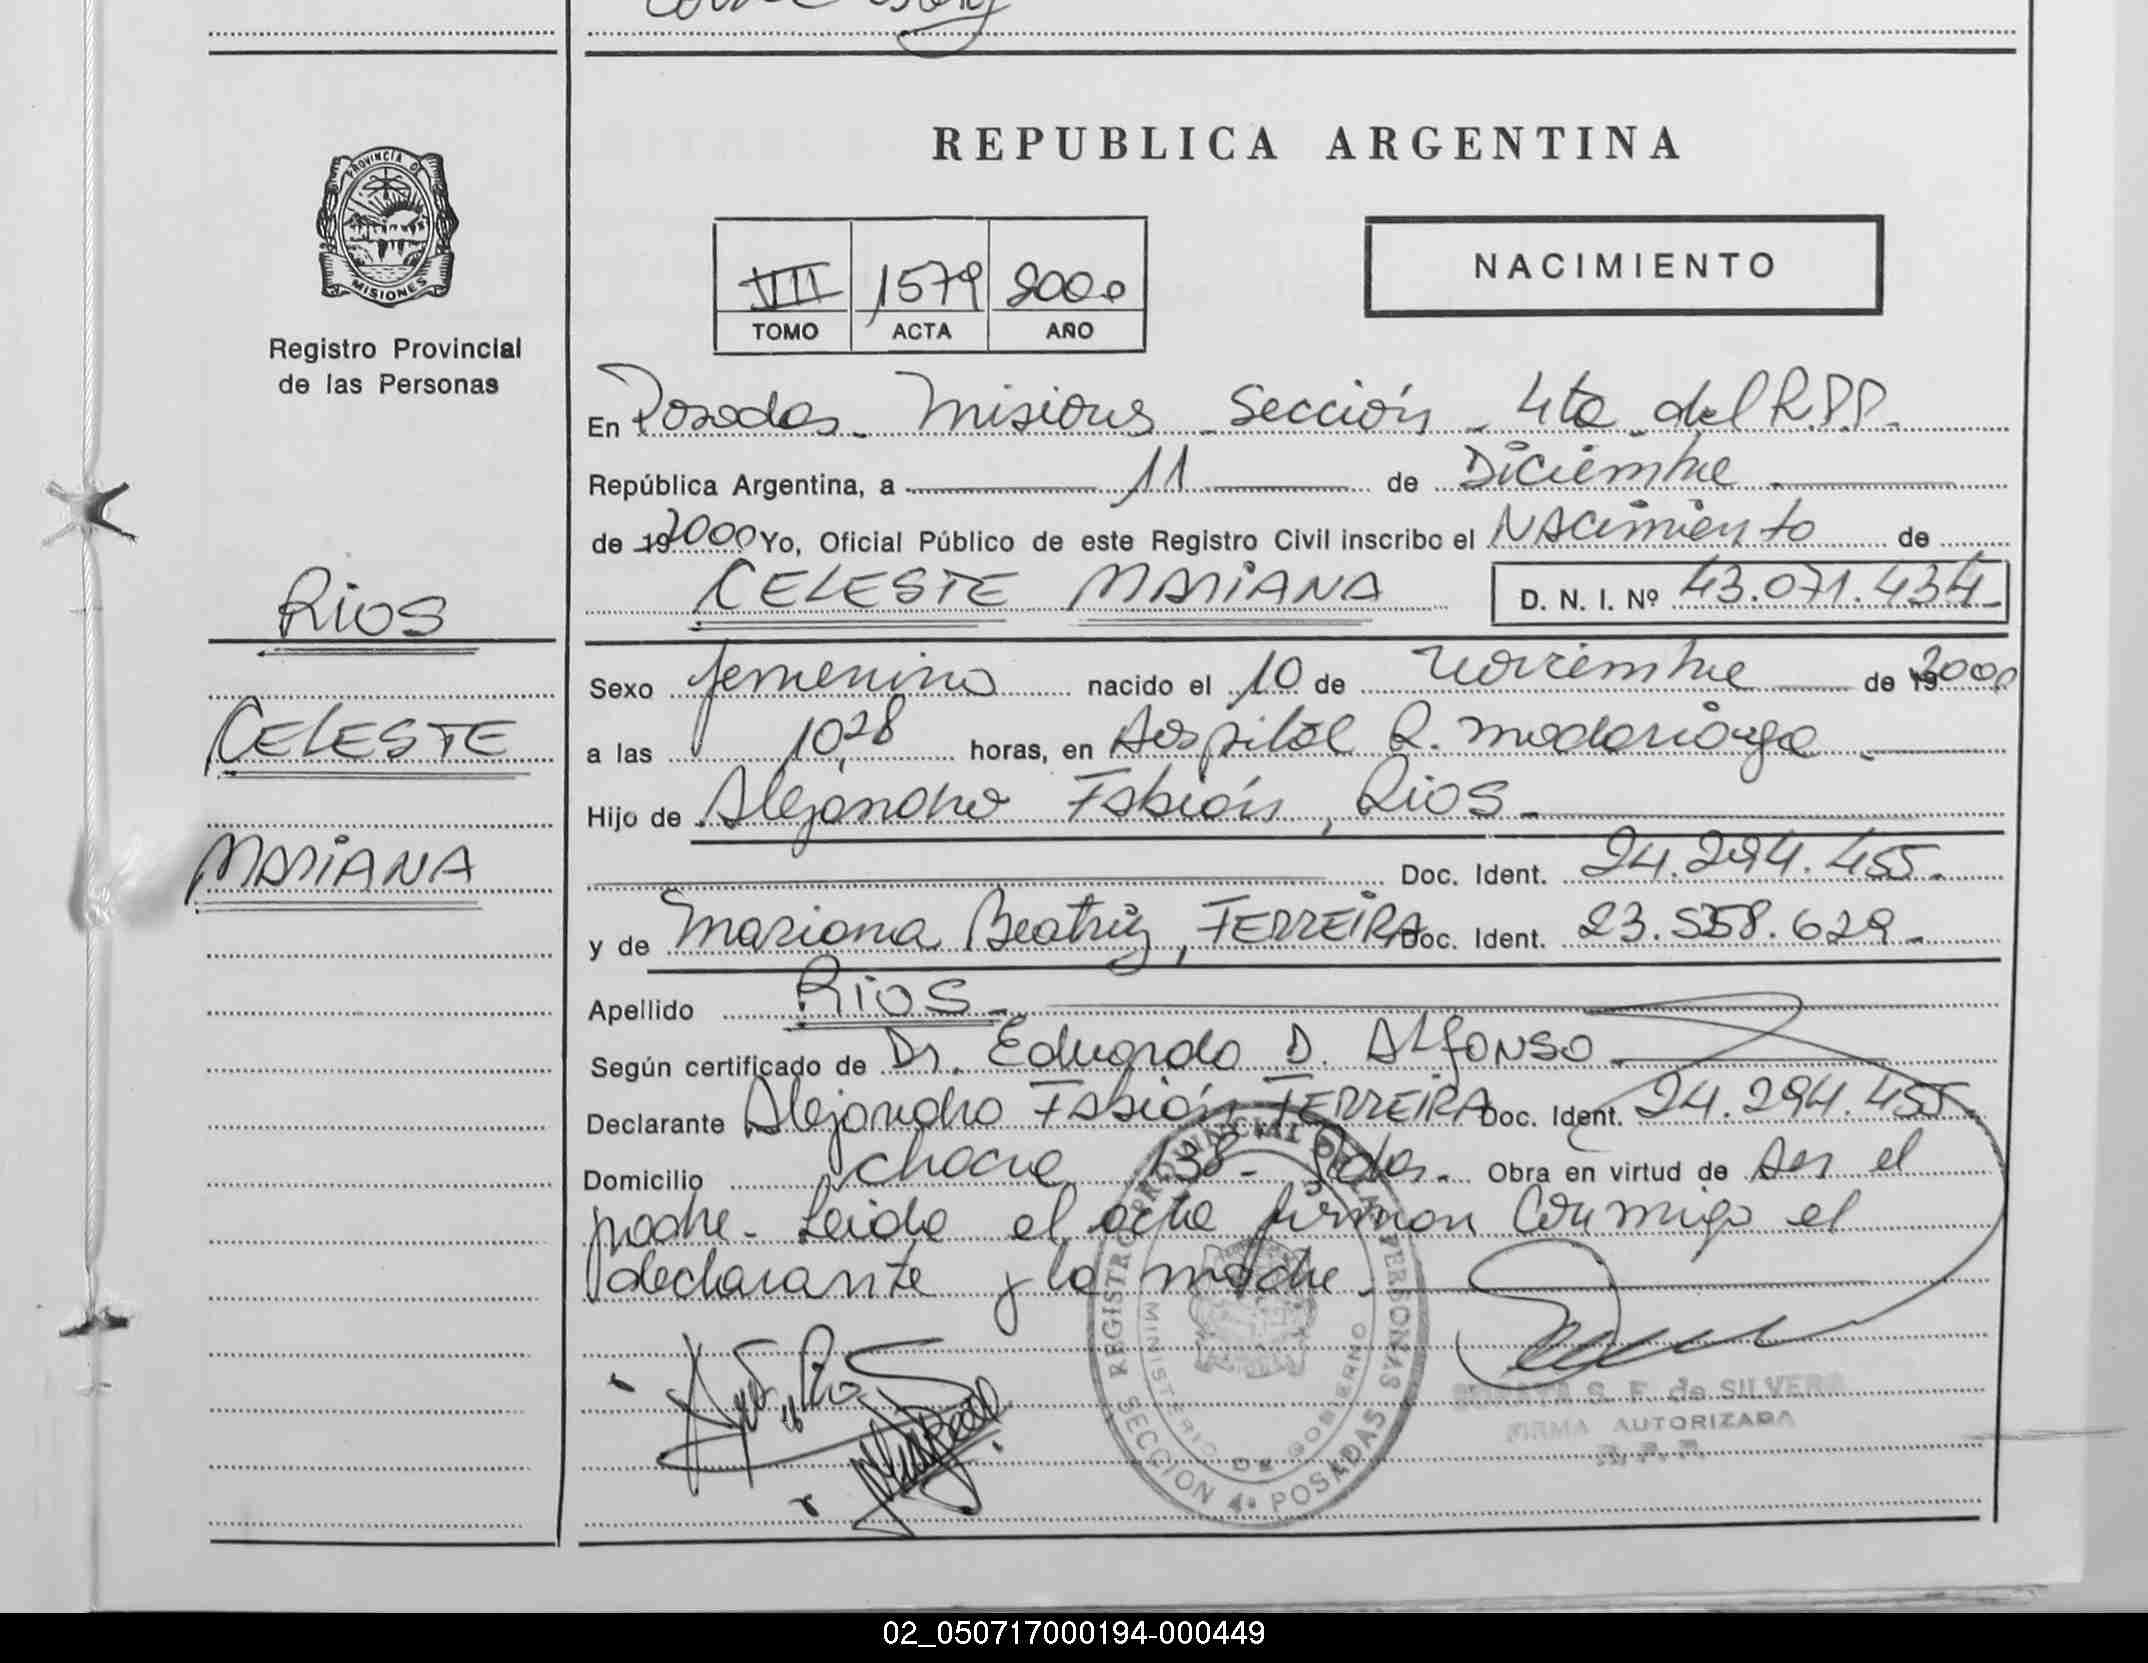 REPUBLICA ARGENTINA
PROVINCIA DE
MISIONES
Registro Provincial
de las Personas
VII 1579 2000
TOMO ACTA AÑO
NACIMIENTO
En Posadas Misiones Sección 4ta del R.P.P.
República Argentina, a 11 de Diciembre
de 19 2000 Yo, Oficial Público de este Registro Civil inscribo el NAcimiento de
CELESTE MARIANA D. N. I. Nº 43.071.434
Rios
CELESTE
MARIANA
Sexo femenino nacido el 10 de noviembre de 19 2000
a las 10,28 horas, en Hospital R. Madariaga
Hijo de Alejandro Fabián, Rios
Doc. Ident. 24.294.455.
y de Mariana Beatriz, FERREIRA Doc. Ident. 23.558.629.
Apellido Rios
Según certificado de Dr. Eduardo D. ALFONSO
Declarante Alejandro Fabián FERREIRA Doc. Ident. 24.294.455
Domicilio Chacra 138 - Pdas. Obra en virtud de ser el
padre. Leida el acta firman conmigo el
declarante y la madre.
REGISTRO PROVINCIAL DE LAS PERSONAS
MINISTERIO DE GOBIERNO
SECCION 4ª POSADAS
S. F. de SILVERO
FIRMA AUTORIZADA
02_050717000194-000449